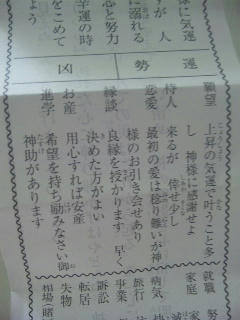 様に気運
すが 人
に溺れる
心と努力
幸運の時
をこめて
よう
運勢
凶
願望 上昇の気運で叶うこと多し 神様に感謝せよ
待人 来るが 倖せ少し
恋愛 最初の愛は稔り難いが神様のお引き会せあり
縁談 良縁を授かります 早く決めた方がよい
お産 用心すれば安産
進学 希望を持ち励みなさい御神助があります
就職
家庭
病気
旅行
事業
訴訟
転居
失物
相場